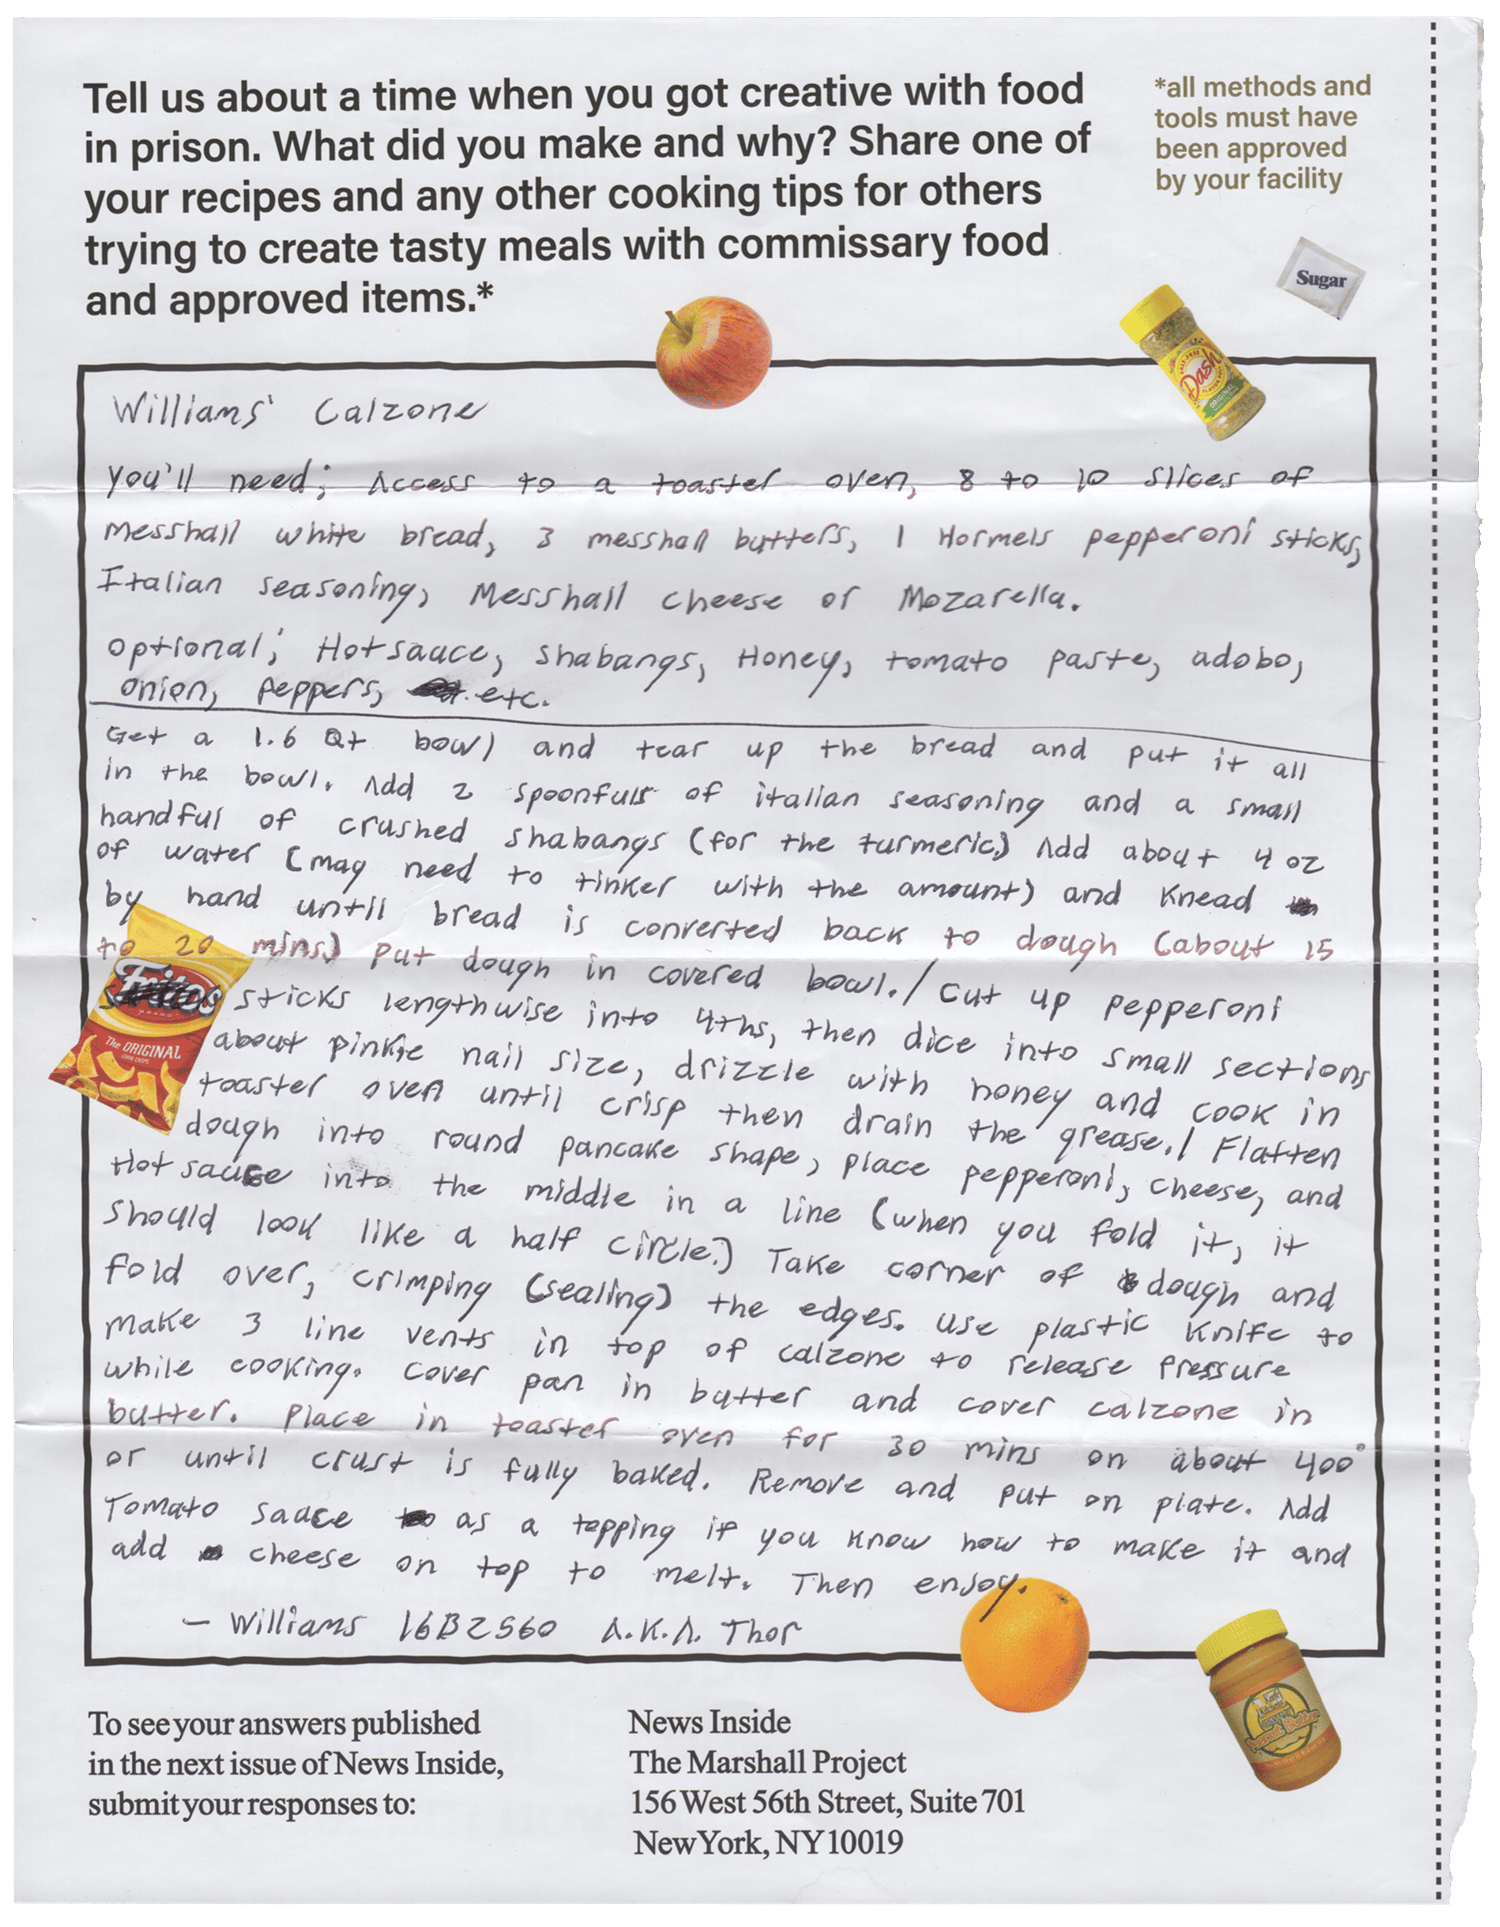 Tell us about a time when you got creative with food
in prison. What did you make and why? Share one of
your recipes and any other cooking tips for others
trying to create tasty meals with commissary food
and approved items.*
*all methods and
tools must have
been approved
by your facility
Sugar
Dash
ORIGINAL
Williams' Calzone
You'll need; Access to a toaster oven, 8 to 10 slices of
Messhall white bread, 3 messhall butters, 1 Hormels pepperoni sticks,
Italian seasoning, Messhall cheese or Mozarella.
Optional; Hotsauce, Shabangs, Honey, tomato paste, adobo,
onion, peppers, etc.
Get a 1.6 Qt bowl and tear up the bread and put it all
in the bowl. Add 2 spoonfuls of italian seasoning and a small
handful of crushed shabangs (for the turmeric.) Add about 4 oz
of water (may need to tinker with the amount) and knead
by hand until bread is converted back to dough (about 15
to 20 mins.) Put dough in covered bowl./ Cut up pepperoni
sticks lengthwise into 4ths, then dice into small sections
about pinkie nail size, drizzle with honey and cook in
toaster oven until crisp then drain the grease./ Flatten
dough into round pancake shape, place pepperoni, cheese, and
Hot sauce into the middle in a line (when you fold it, it
should look like a half circle.) Take corner of dough and
fold over, crimping (sealing) the edges. Use plastic knife to
make 3 line vents in top of calzone to release pressure
while cooking. Cover pan in butter and cover calzone in
butter. Place in toaster oven for 30 mins on about 400°
or until crust is fully baked. Remove and put on plate. Add
Tomato sauce as a topping if you know how to make it and
add cheese on top to melt. Then enjoy.
— Williams 16B2560 A.K.A. Thor
Fritos
BRAND
The ORIGINAL
CORN CHIPS
Peanut Butter
To see your answers published
in the next issue of News Inside,
submit your responses to:
News Inside
The Marshall Project
156 West 56th Street, Suite 701
New York, NY 10019